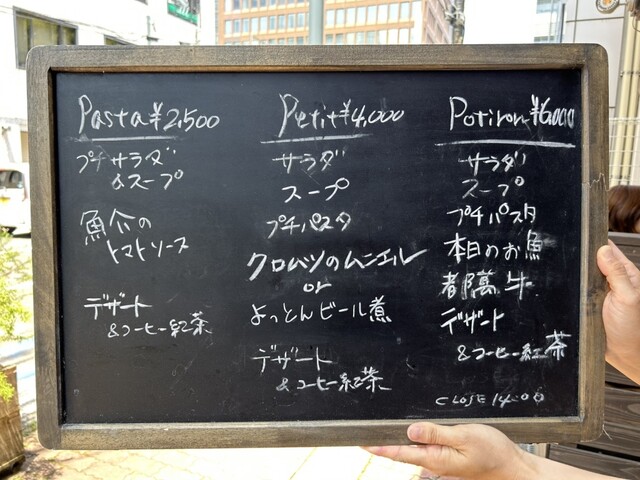 Pasta ¥2,500
プチサラダ
&スープ
魚介の
トマトソース
デザート
&コーヒー紅茶
Petit ¥4,000
サラダ
スープ
プチパスタ
クロムツのムニエル
or
よっとんビール煮
デザート
&コーヒー紅茶
Potiron ¥6,000
サラダ
スープ
プチパスタ
本日のお魚
都萬牛
デザート
&コーヒー紅茶
CLOSE 14:00